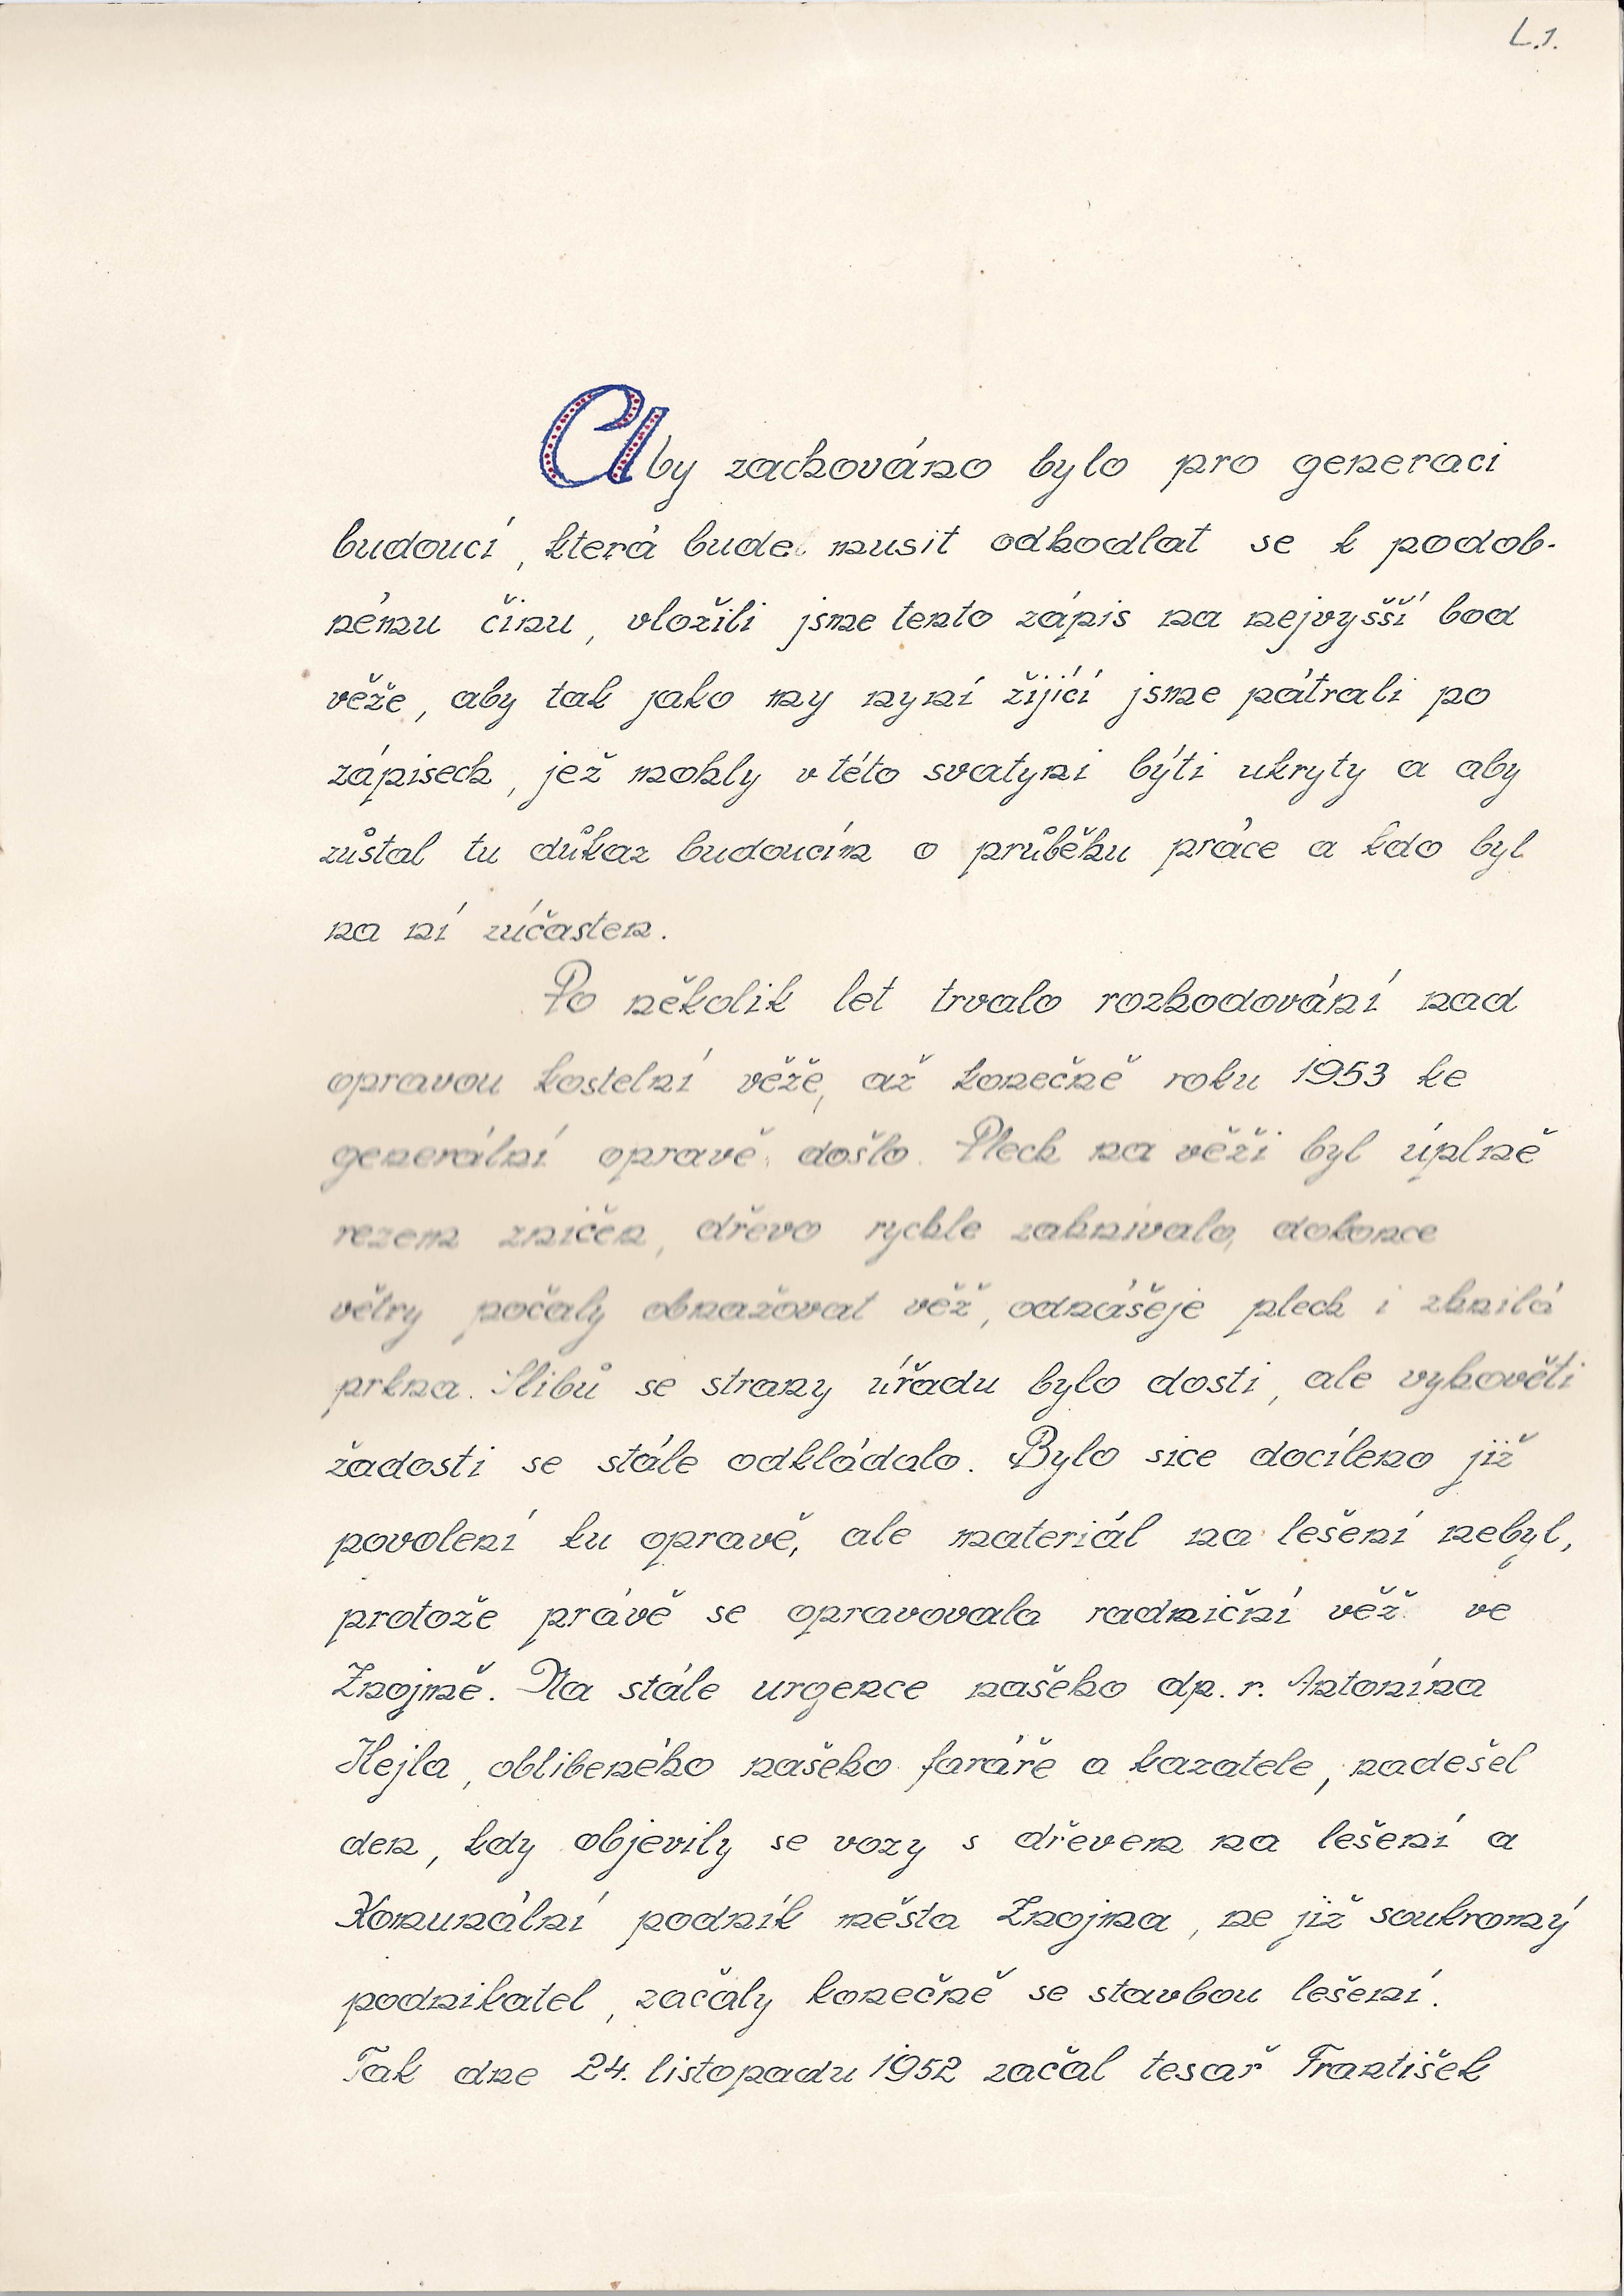 L.1.
Aby zachováno bylo pro generaci
budoucí, která bude musit odhodlat se k podob-
nému činu, vložili jsme tento zápis na nejvyšší bod
věže, aby tak jako my nyní žijící jsme pátrali po
zápisech, jež mohly v této svatyni býti ukryty a aby
zůstal tu důkaz budoucím o průběhu práce a kdo byl
na ní zúčasten.
Po několik let trvalo rozhodování nad
opravou kostelní věže, až konečně roku 1953 ke
generální opravě došlo. Plech na věži byl úplně
rezem zničen, dřevo rychle zahnívalo, dokonce
větry počaly obnažovat věž, odnášeje plech i zhnilá
prkna. Slibů se strany úřadu bylo dosti, ale vyhověti
žadosti se stále odkládalo. Bylo sice docíleno již
povolení ku opravě, ale materiál na lešení nebyl,
protože právě se opravovala radniční věž ve
Znojmě. Na stále urgence našeho dp. r. Antonína
Hejla, oblibeného našeho faráře a kazatele, nadešel
den, kdy objevily se vozy s dřevem na lešení a
Komunální podník města Znojma, ne již soukromý
podnikatel, začaly konečně se stavbou lešení.
Tak dne 24. listopadu 1952 začal tesař František